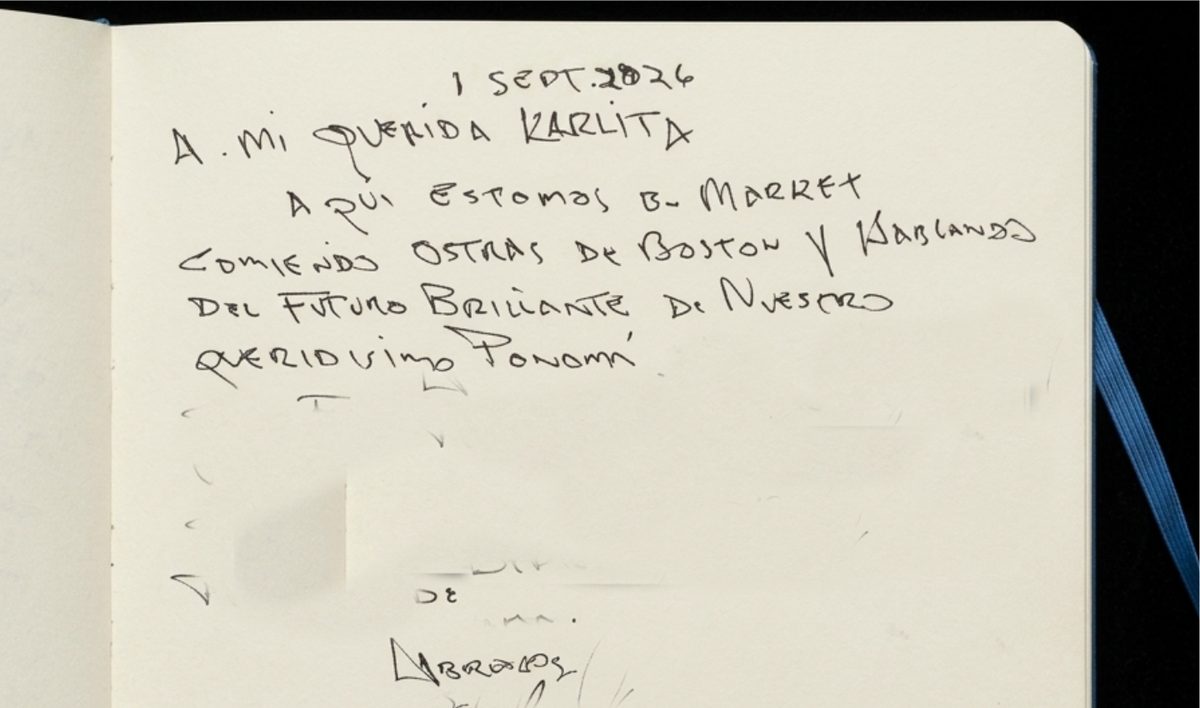 1 SEPT. 2026
A. Mi QUERIDA KARLITA
AQUÍ ESTAMOS B- MARKET
COMIENDO OSTRAS DE BOSTON Y HABLANDO
DEL FUTURO BRILLANTE DE NUESTRO
QUERIDISIMO PANAMÁ
DE
ABRAZOS